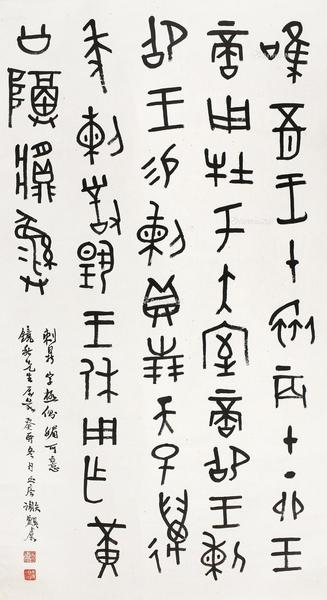 唯五月王才衣辰才丁卯王
啻用牡于大室啻邵王剌
御王易剌貝卅朋天子萬
年剌對揚王休用乍黃
公尊䵼彝
剌鼎字極媚可意
先生屬 癸酉冬月